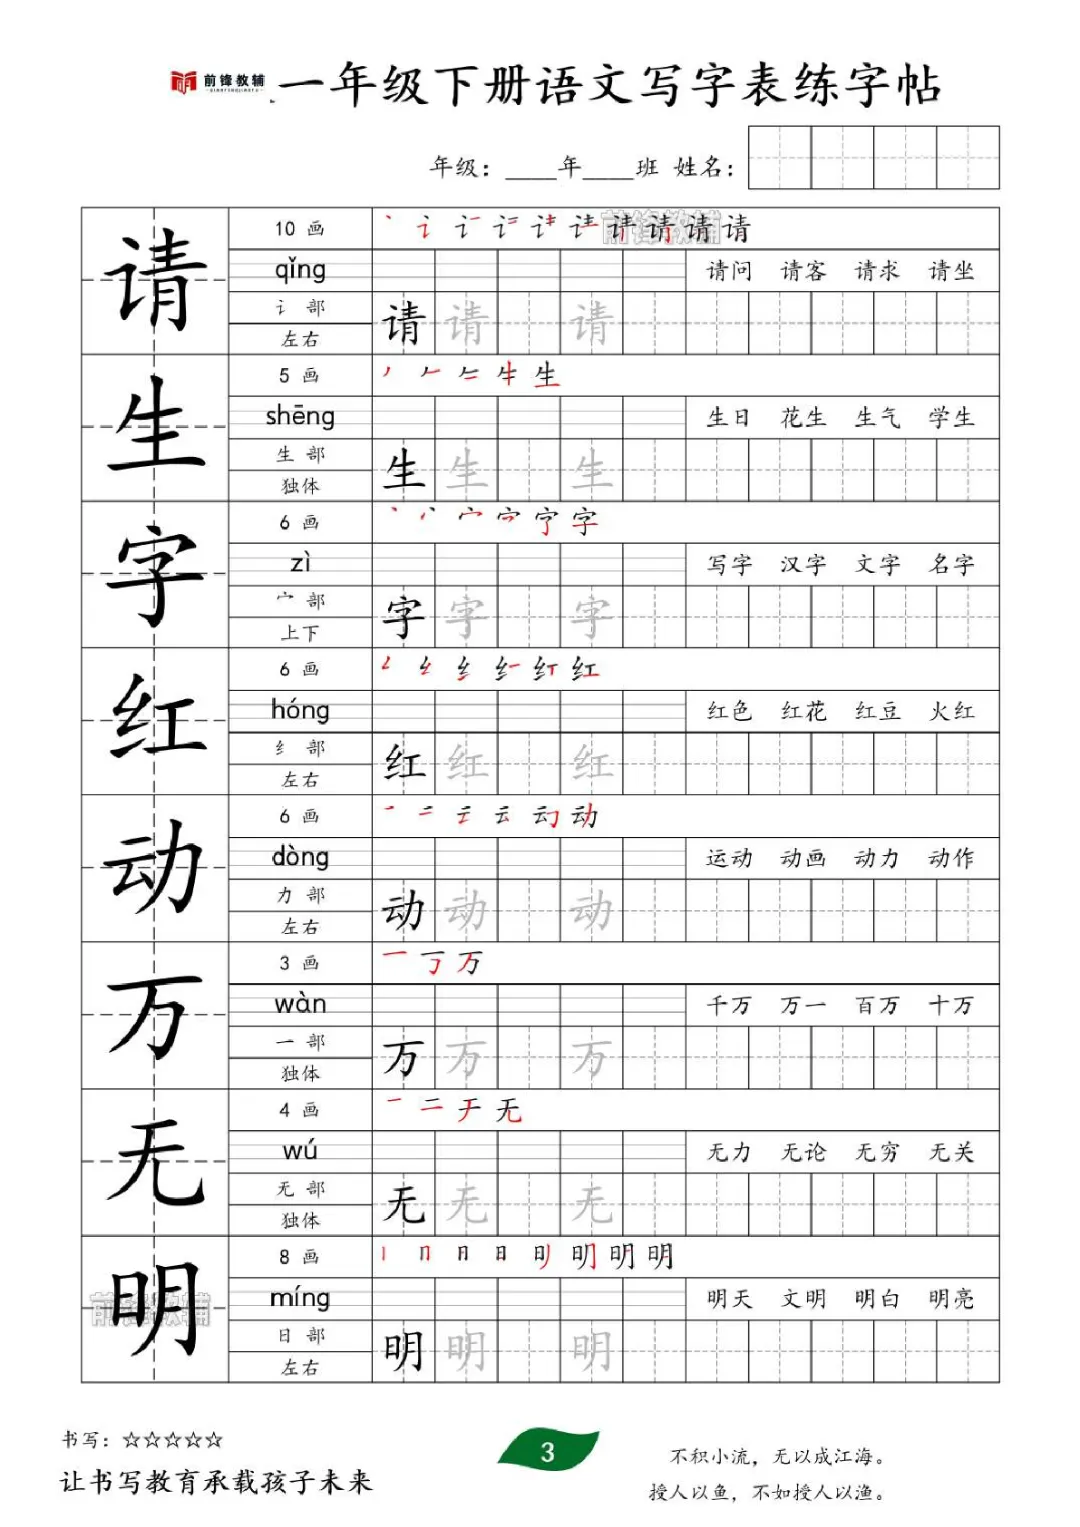 前锋教辅
QIANFENGJIAOFU
一年级下册语文写字表练字帖
年级：____年____班 姓名：
请
10 画
前锋教辅
请
qǐng
请问 请客 请求 请坐
讠 部
左右
请 请 请
生
5 画
生
shēng
生日 花生 生气 学生
生 部
独体
生 生 生
字
6 画
字
zì
写字 汉字 文字 名字
宀 部
上下
字 字 字
红
6 画
红
hóng
红色 红花 红豆 火红
纟 部
左右
红 红 红
动
6 画
动
dòng
运动 动画 动力 动作
力 部
左右
动 动 动
万
3 画
万
wàn
千万 万一 百万 十万
一 部
独体
万 万 万
无
4 画
无
wú
无力 无论 无穷 无关
无 部
独体
无 无 无
明
前锋教辅
8 画
明
míng
明天 文明 明白 明亮
日 部
左右
明 明 明
书写：☆☆☆☆☆
让书写教育承载孩子未来
3
不积小流，无以成江海。
授人以鱼，不如授人以渔。